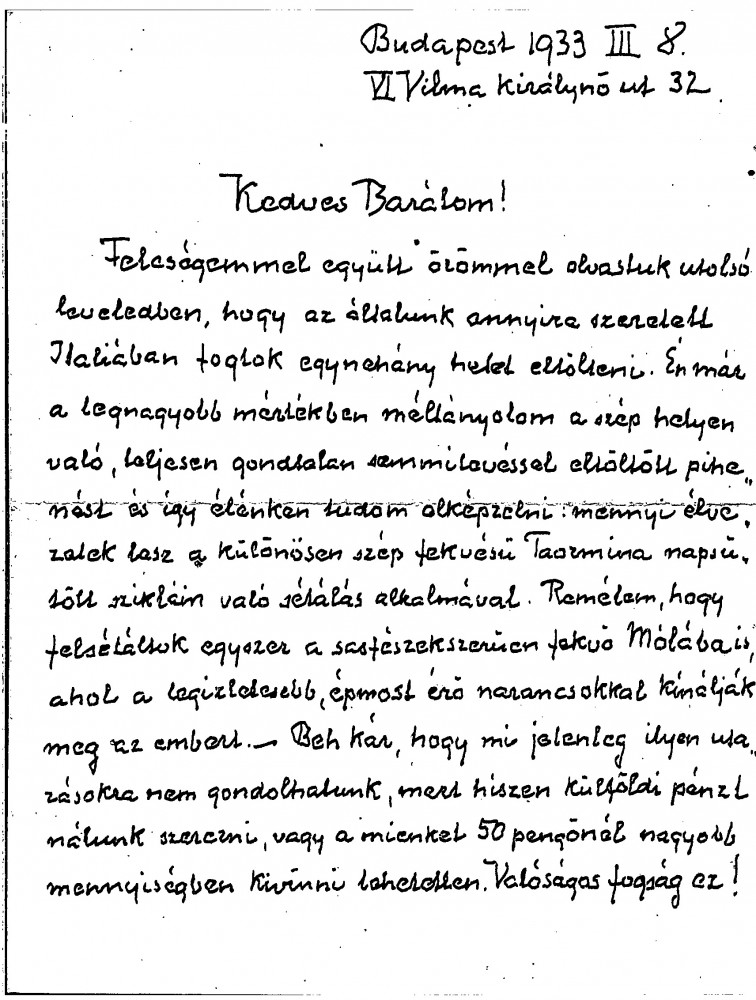 Budapest 1933 III 8.
VI Vilma királynő ut 32.
Kedves Barátom!
Feleségemmel együtt örömmel olvastuk utolsó
leveledben, hogy az általunk annyira szeretett
Italiában fogtok egynehány hetet eltölteni. Én már
a legnagyobb mértékben méltányolom a szép helyen
való, teljesen gondtalan semmitevéssel eltöltött pihe„
nést és így élénken tudom elképzelni: mennyi élve„
zetek lesz a különösen szép fekvésű Taormina napsü„
tött szikláin való sétálás alkalmával. Remélem, hogy
felsétáltok egyszer a sasfészekszerüen fekvő Mólába is,
ahol a legizletesebb, épmost érő narancsokkal kínálják
meg az embert. — Beh kár, hogy mi jelenleg ilyen uta„
zásokra nem gondolhatunk, mert hiszen külföldi pénzt
nálunk szerezni, vagy a mienket 50 pengőnél nagyobb
mennyiségben kivinni lehetetlen. Valóságos fogság ez!